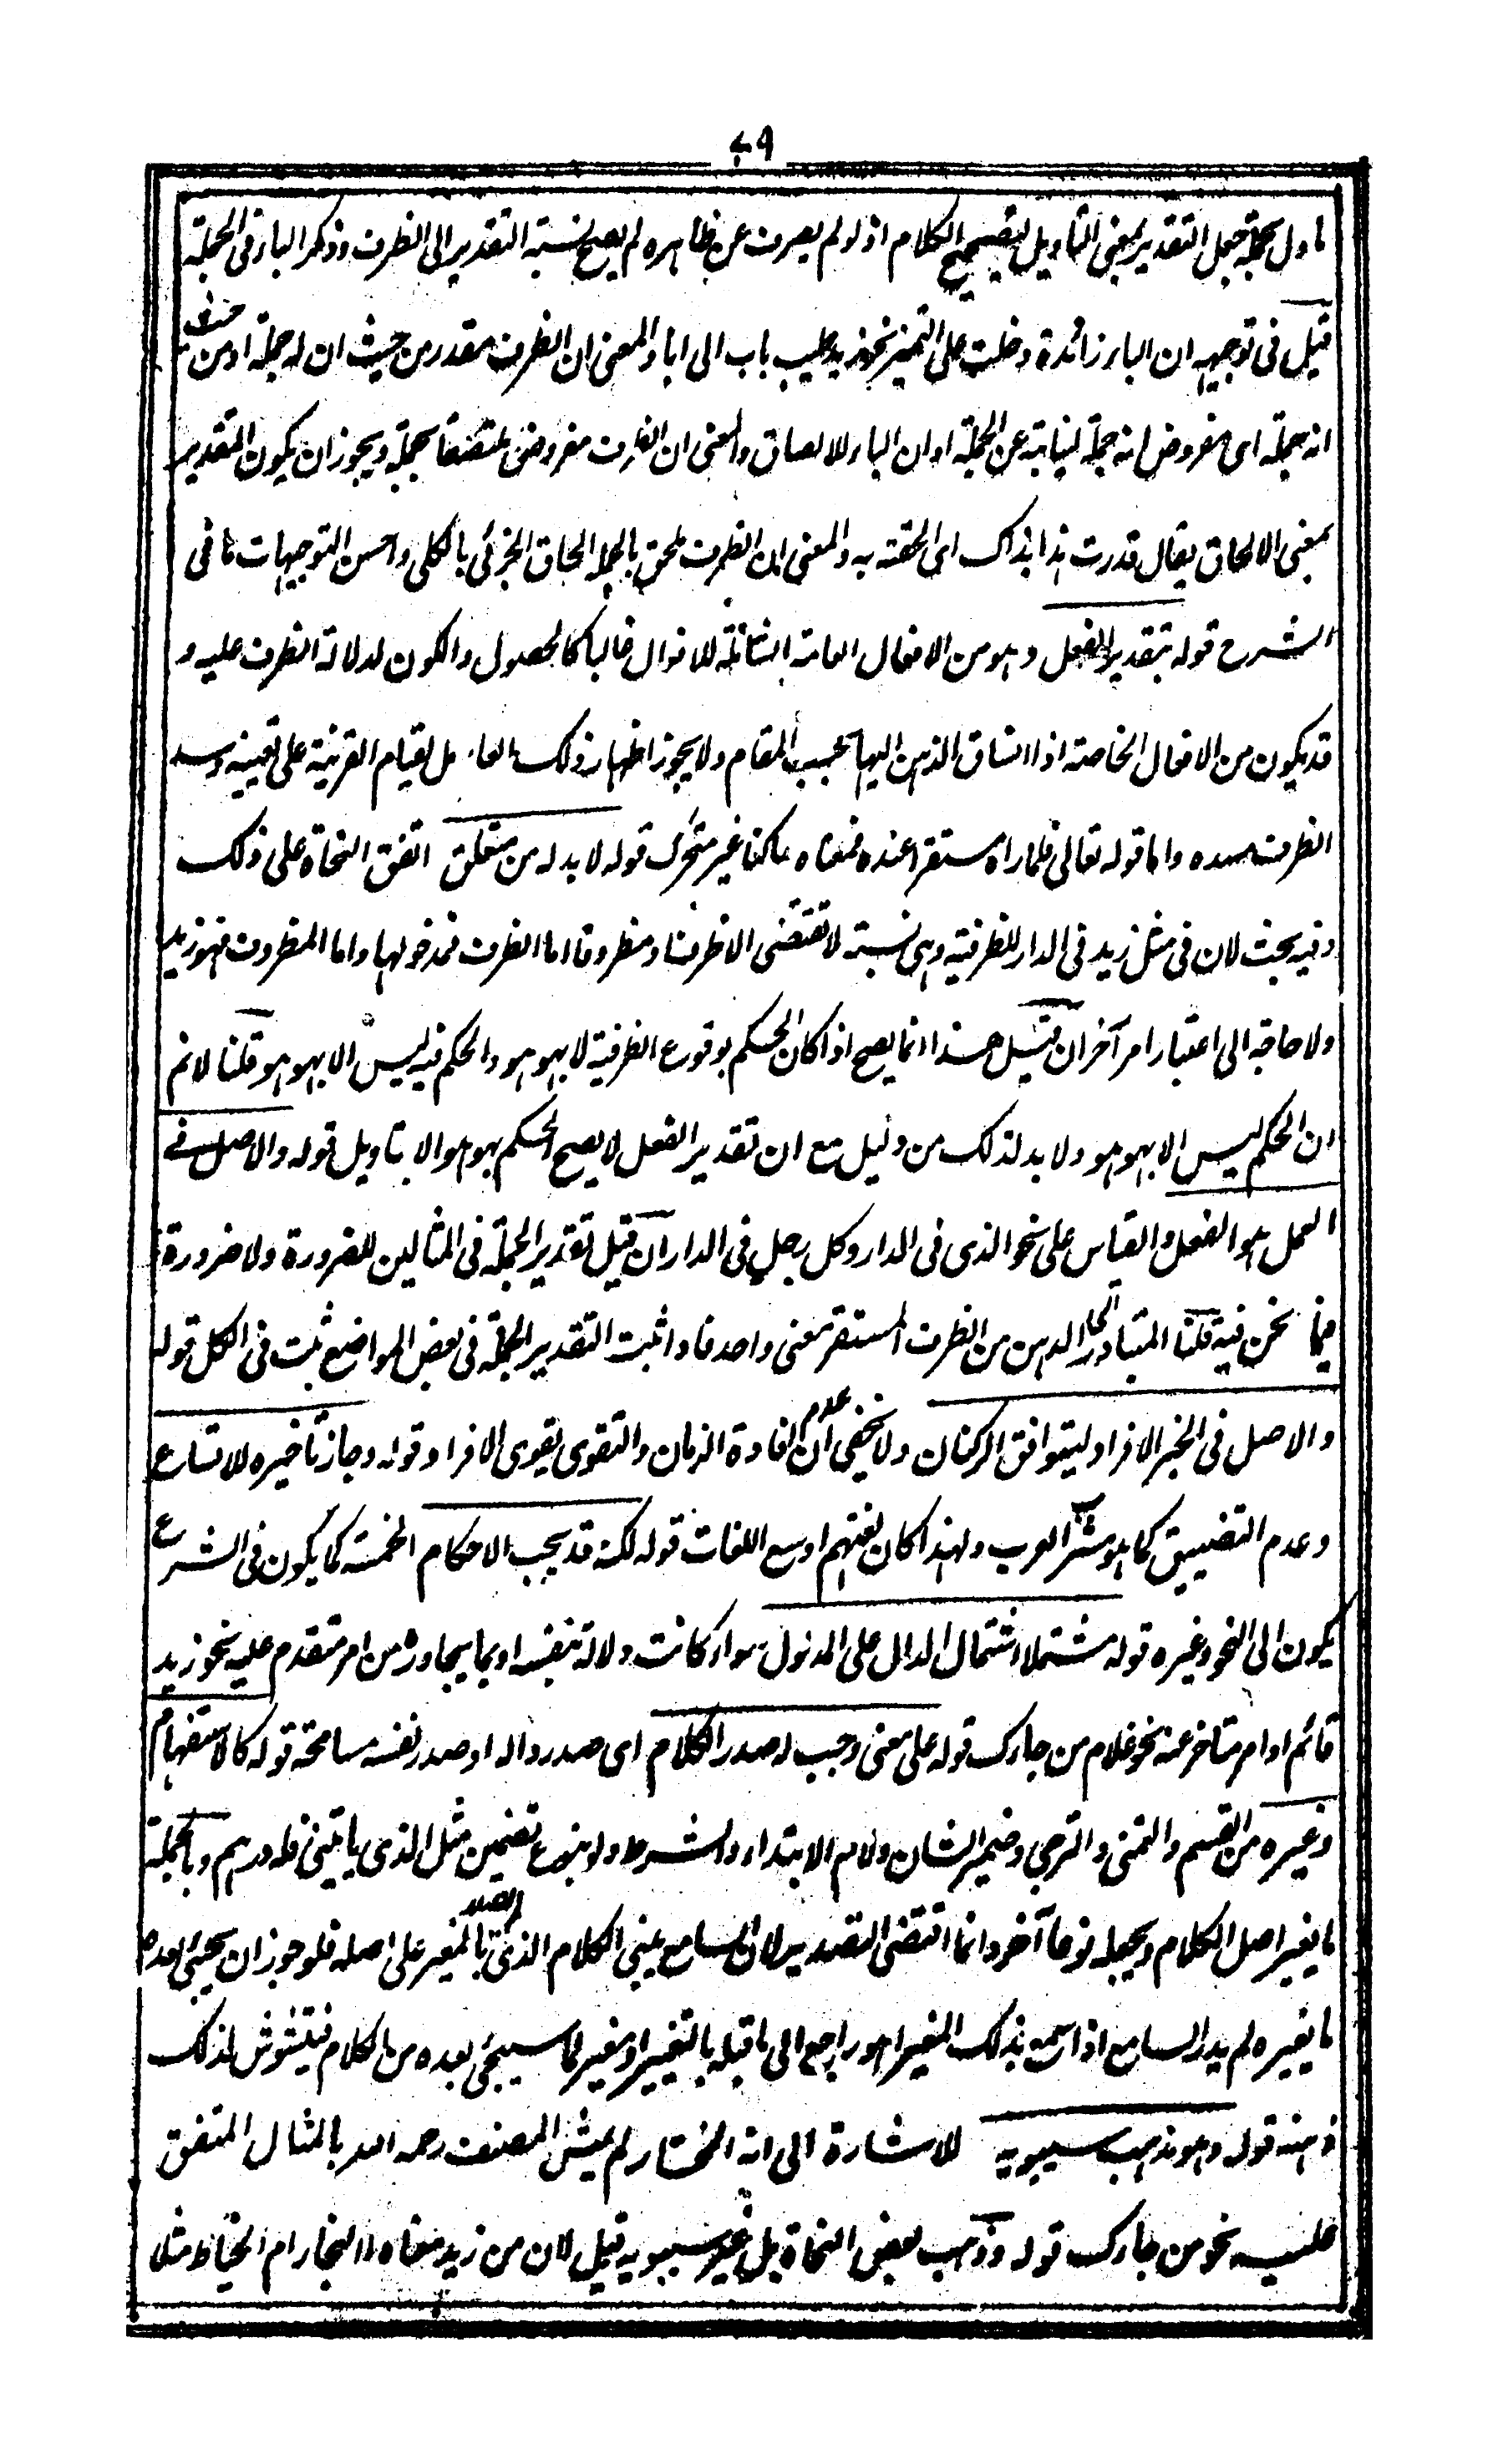 ٤٩
ماول بجملة جعل التقدير بمعنى التأويل لتصحيح الكلام اذ لو لم يصرف عن ظاهره لم يصح نسبة التقدير الى الظرف وذكر الباء فى الجملة
قيل فى توجيهه ان الباء زائدة دخلت على التميز نحو زيد طيب باب الى ابا والمعنى ان الظرف مقدر من حيث ان له جملة او من حيث
انه جملة اى مفروض انه جملة لنيابته عن الجملة او ان الباء للالصاق والمعنى ان الظرف مفروض ملتصقا بجملة ويجوز ان يكون التقدير
بمعنى الالحاق يقال قدرت هذا بذاك اى الحقته به والمعنى ان الظرف ملحق بالجملة الحاق الجزئى بالكلى واحسن التوجيهات ما فى
الشرح قوله بتقدير الفعل وهو من الافعال العامة الشاملة للافعال غالبا كالحصول والكون لدلالة الظرف عليه و
قد يكون من الافعال الخاصة اذا انساق الذهن اليها بحسب المقام ولا يجوز اظهار ذلك العامل لقيام القرينة على تعيينه وسد
الظرف مسده واما قوله تعالى فلما راه مستقرا عنده فمعناه ساكنا غير متحرك قوله لا بد له من متعلق اتفق النحاة على ذلك
وفيه بحث لان فى مثل زيد فى الدار للظرفية وهى نسبة لا تقتضى الا ظرفا ومظروفا اما الظرف فمدخولها واما المظروف فهو زيد
ولا حاجة الى اعتبار امر آخر ان قيل هذا انما يصح اذا كان الحكم بوقوع الظرفية لا بهو هو والحكم فيه ليس الا بهو هو قلنا لا نم
ان الحكم ليس الا بهو هو ولا بد لذلك من دليل مع ان تقدير الفعل لا يصح الحكم بهو هو الا بتاويل قوله والاصل فے
العمل هو الفعل والقياس على نحو الذى فى الدار وكل رجل فى الدار ان قيل تقدير الجملة فى المثالين للضرورة ولا ضرورة
فيما نحن فيه قلنا المتبادر الى الذهن من الظرف المستقر معنى واحد فاذا ثبت التقدير الجملة فى بعض المواضع ثبت فى الكل قوله
والاصل فى الخبر الافراد ليتوافق الركنان ولا يخفى ان عدم افادة الزمان والتقوى يقوى الافراد قوله وجاز تأخيره للاتساع
وعدم التضييق كما هو مشرب العرب ولهذا كان لغتهم اوسع اللغات قوله لكنه قد يجب الاحكام الخمسة كما يكون فى الشرع
يكون الى النحو وغيره قوله مشتملا اشتمال الدال على المدلول سواء كانت دلالة بنفسه او بما يجاوره من امر متقدم عليه نحو زيد
قائم او امر متاخر عنه نحو غلام من جاءك قوله على معنى وجب له صدر الكلام اى صدر داله او صدر نفسه مسامحة قوله كالاستفهام
وغيره من القسم والتمنى والترجى وضمير الشان ولام الابتداء والشرط ولو بنوع تضمين مثل الذى ياتينى فله درهم وبالجملة
ما يغير اصل الكلام ويجعله نوعا آخر وانما اقتضى التصدير لان السامع يبنى الكلام الذى لم يصدر بالمغير على اصله فلو جوز ان يجيئ بعده
ما يغيره لم يدر السامع اذا سمع بذلك المغير اهو راجع الى ما قبله بالتغيير او مغير لما سيجئ بعده من الكلام فيتشوش لذلك
ذهنه قوله وهو مذهب سيبويه للاشارة الى انه المختار لم يمش المصنف رحمه الله بالمثال المتفق
عليه نحو من جاءك قوله وذهب بعض النحاة بل غير سيبويه قيل لان من زيد معناه االنجار ام الخياط مثلا